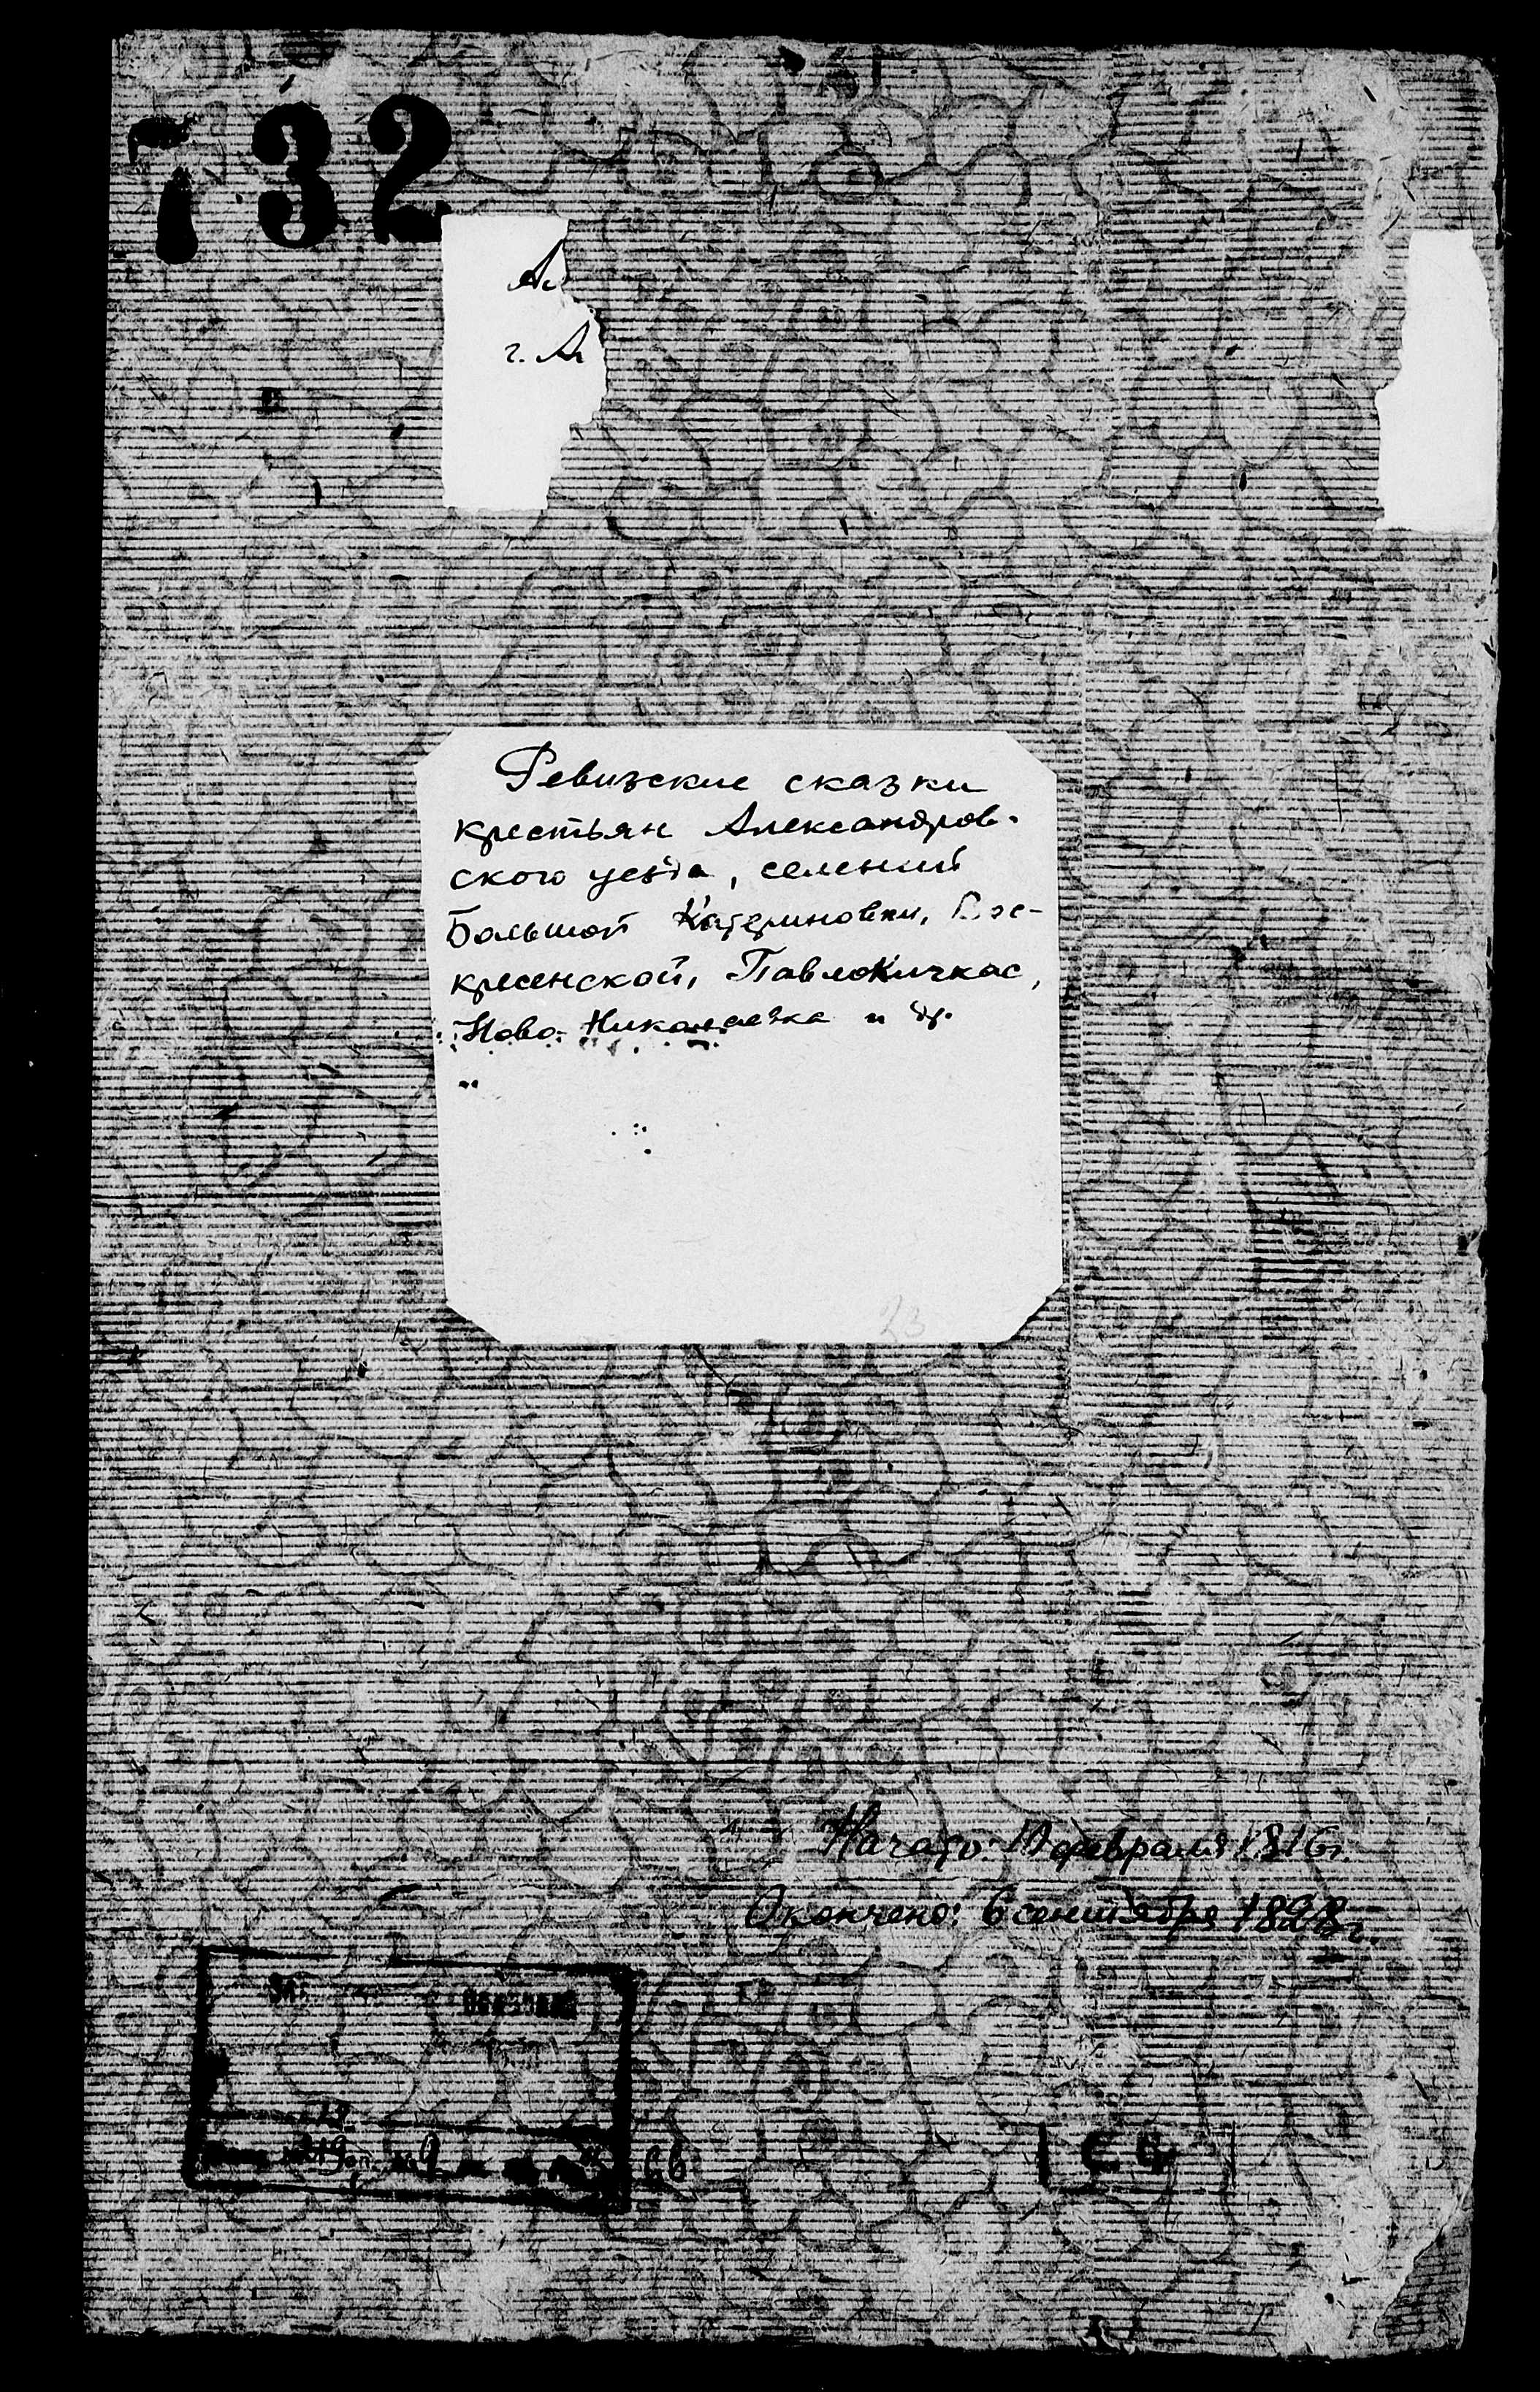 732
А
г. А
Ревизские сказки
крестьян Александров-
ского уезда, селений
Большой Катериновки, Вос-
кресенской, Павлокичкас,
Ново-Николаевка и др.
23
Начато: февраля 1816 г.
Окончено: 6 сентября 1828 г.